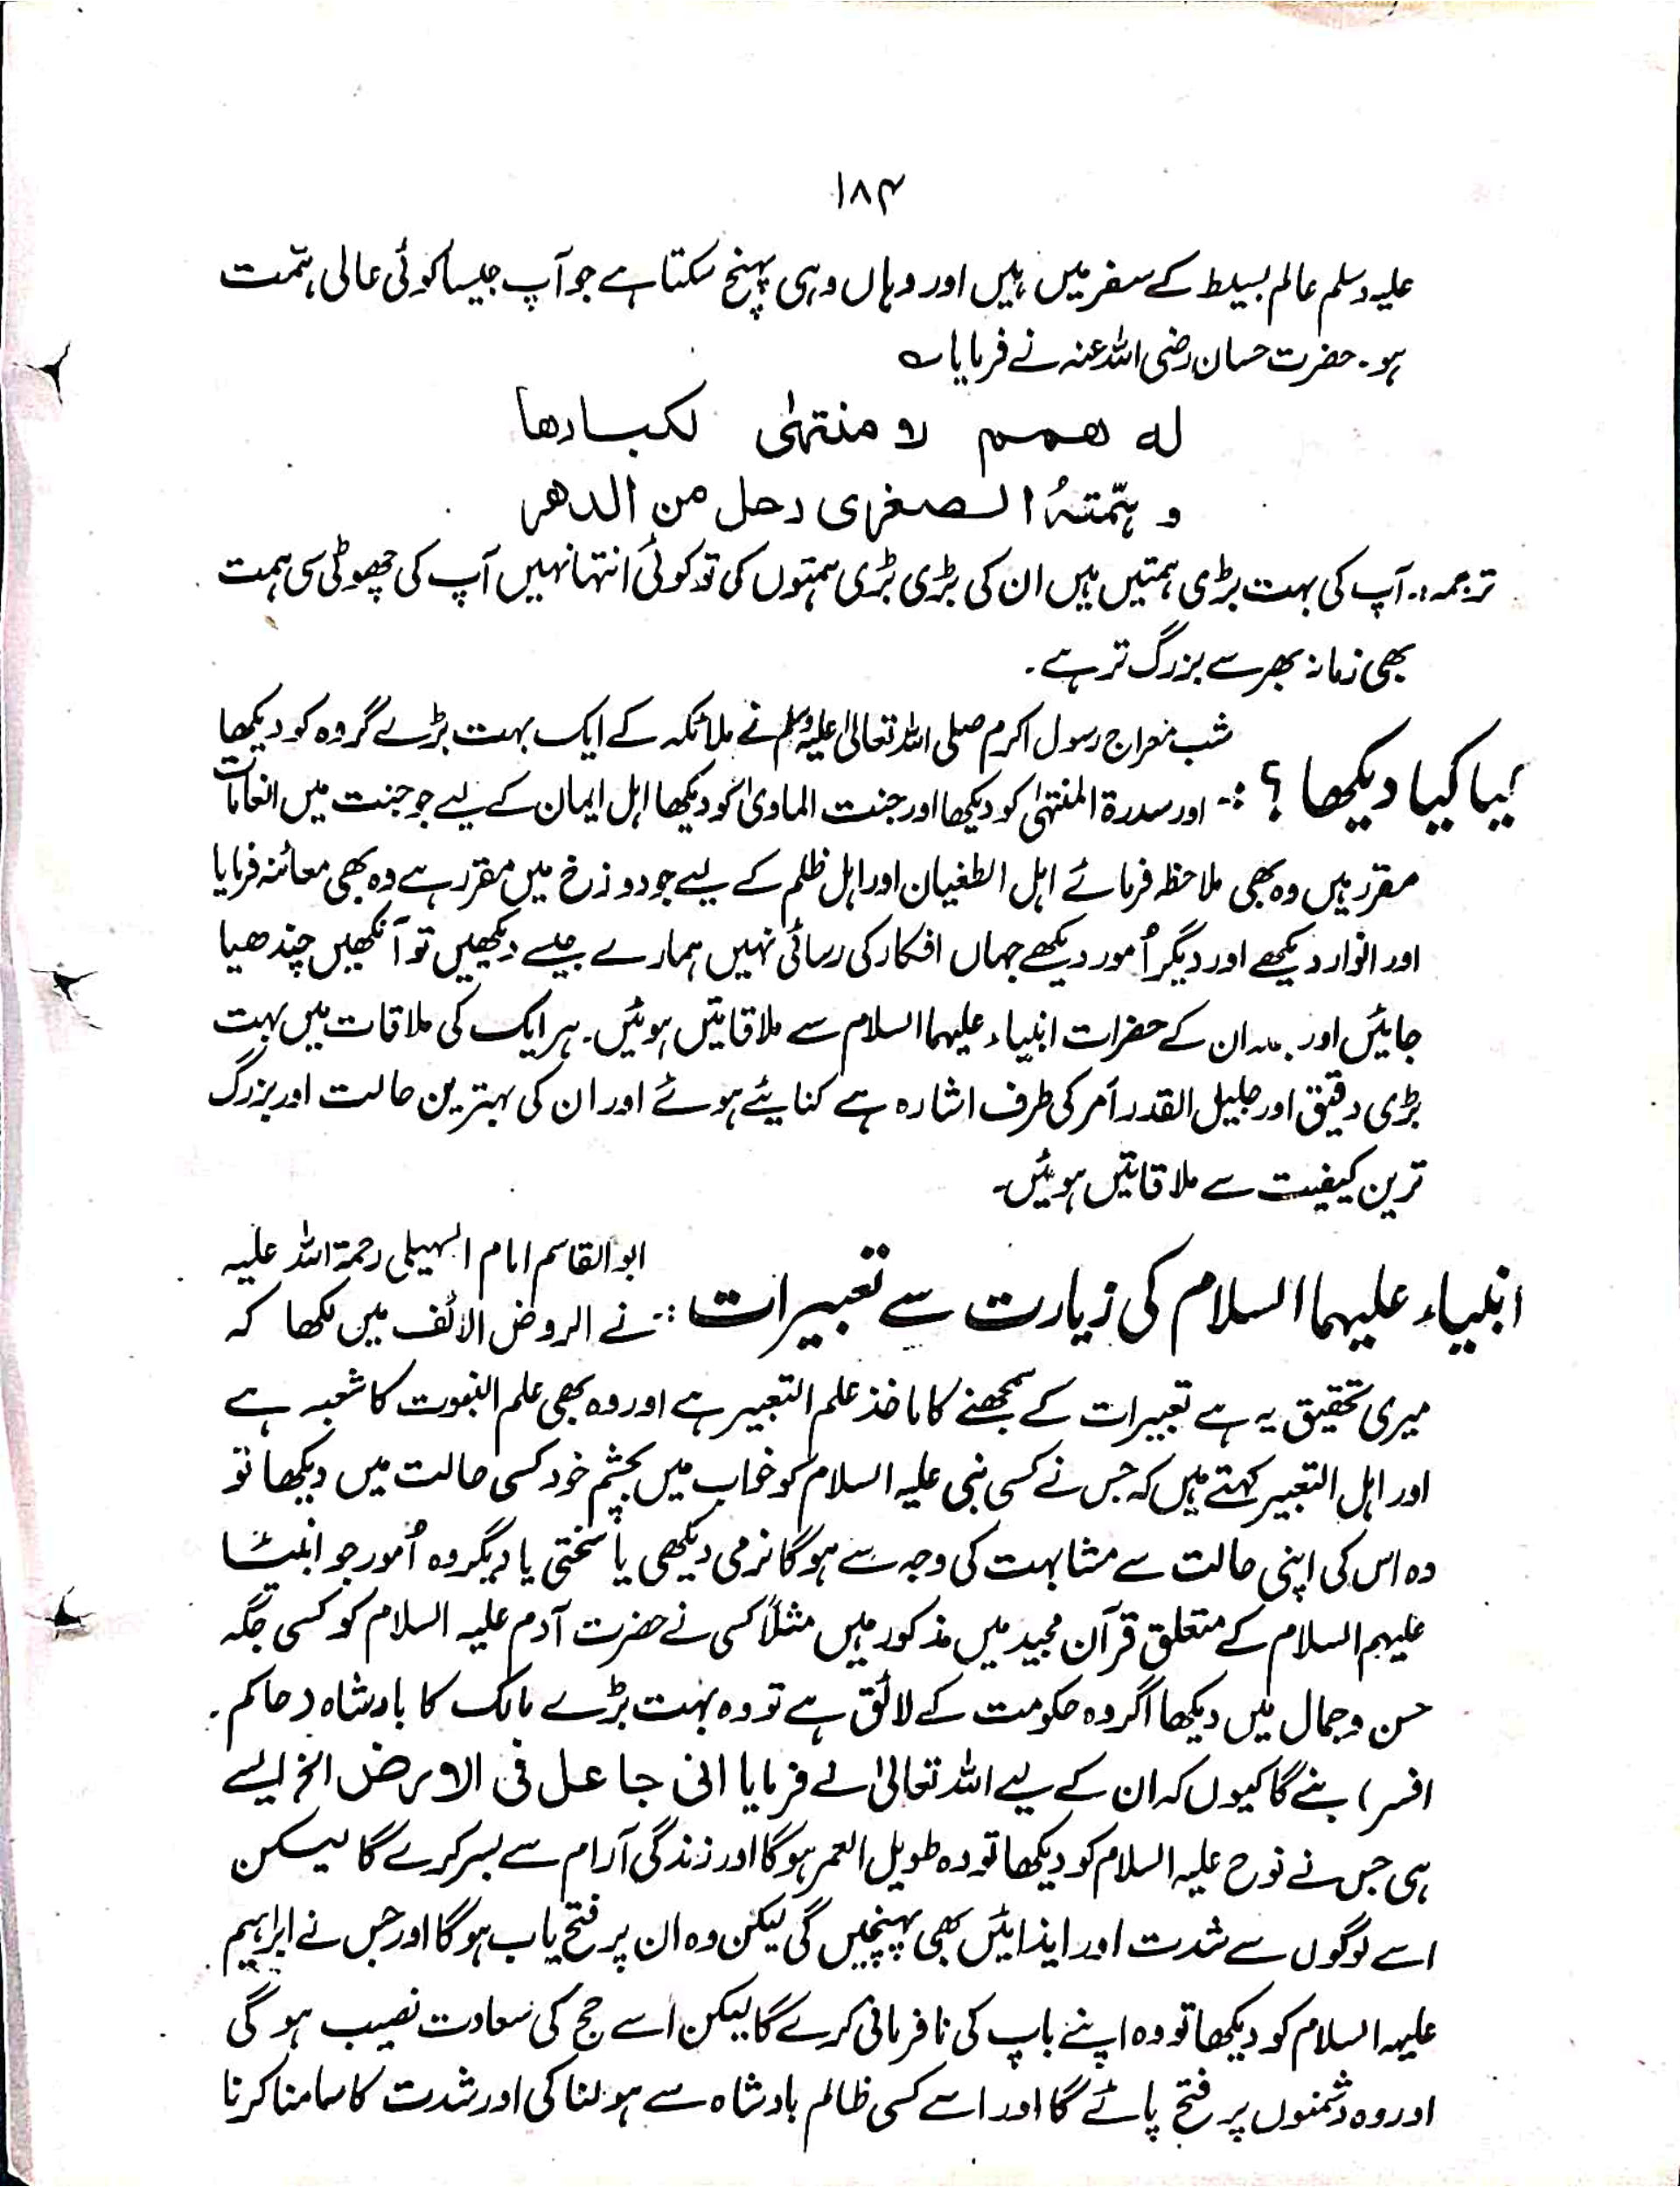 ۱۸۴
علیہ وسلم عالم بسیط کے سفر میں ہیں اور وہاں وہی پہنچ سکتا ہے جو آپ جیسا کوئی عالی ہمّت
ہو۔ حضرت حسان رضی اللہ عنہ نے فرمایا ؎
له همم لا منتهٰی لکبارها
و ہمّتہُ الصغری دحل من الدهر
ترجمہ:۔ آپ کی بہت بڑی ہمتیں ہیں ان کی بڑی بڑی ہمتوں کی تو کوئی انتہا نہیں آپ کی چھوٹی سی ہمت
بھی زمانہ بھر سے بزرگ تر ہے۔
کیا کیا دیکھا ؟ :۔ شب معراج رسول اکرم صلی اللہ تعالیٰ علیہ وسلم نے ملائکہ کے ایک بہت بڑے گروہ کو دیکھا
اور سدرۃ المنتہیٰ کو دیکھا اور جنت الماویٰ کو دیکھا اہل ایمان کے لیے جو جنت میں انعامات
مقرر ہیں وہ بھی ملاحظہ فرمائے اہل الطغیان اور اہل ظلم کے لیے جو دوزخ میں مقرر ہے وہ بھی معائنہ فرمایا
اور انوار دیکھے اور دیگر اُمور دیکھے جہاں افکار کی رسائی نہیں ہمارے جیسے دیکھیں تو آنکھیں چندھیا
جائیں اور ان کے حضرات انبیاء علیہما السلام سے ملاقاتیں ہوئیں۔ ہر ایک کی ملاقات میں بہت
بڑی دقیق اور جلیل القدر اَمر کی طرف اشارہ ہے کنایئے ہوئے اور ان کی بہترین حالت اور بزرگ
ترین کیفیت سے ملاقاتیں ہوئیں۔
انبیاء علیہما السلام کی زیارت سے تعبیرات :۔ ابوالقاسم امام السہیلی رحمۃ اللہ علیہ
نے الروض الانف میں لکھا کہ
میری تحقیق یہ ہے تعبیرات کے سمجھنے کا ماخذ علم التعبیر ہے اور وہ بھی علم النبوت کا شعبہ ہے
اور اہل التعبیر کہتے ہیں کہ جس نے کسی نبی علیہ السلام کو خواب میں بچشم خود کسی حالت میں دیکھا تو
وہ اس کی اپنی حالت سے مشابہت کی وجہ سے ہوگا نرمی دیکھی یا سختی یا دیگر وہ اُمور جو انبیاء
علیہم السلام کے متعلق قرآن مجید میں مذکور ہیں مثلاً کسی نے حضرت آدم علیہ السلام کو کسی جگہ
حسن و جمال میں دیکھا اگر وہ حکومت کے لائق ہے تو وہ بہت بڑے مالک کا بادشاہ (حاکم۔
افسر) بنے گا کیوں کہ ان کے لیے اللہ تعالیٰ نے فرمایا انی جاعل فی الارض الخ ایسے
ہی جس نے نوح علیہ السلام کو دیکھا تو وہ طویل العمر ہوگا اور زندگی آرام سے بسر کرے گا لیکن
اسے لوگوں سے شدت اور ایذائیں بھی پہنچیں گی لیکن وہ ان پر فتح یاب ہوگا اور جس نے ابراہیم
علیہ السلام کو دیکھا تو وہ اپنے باپ کی نافرمانی کرے گا لیکن اسے حج کی سعادت نصیب ہو گی
اور وہ دشمنوں پر فتح پائے گا اور اسے کسی ظالم بادشاہ سے ہولناکی اور شدت کا سامنا کرنا